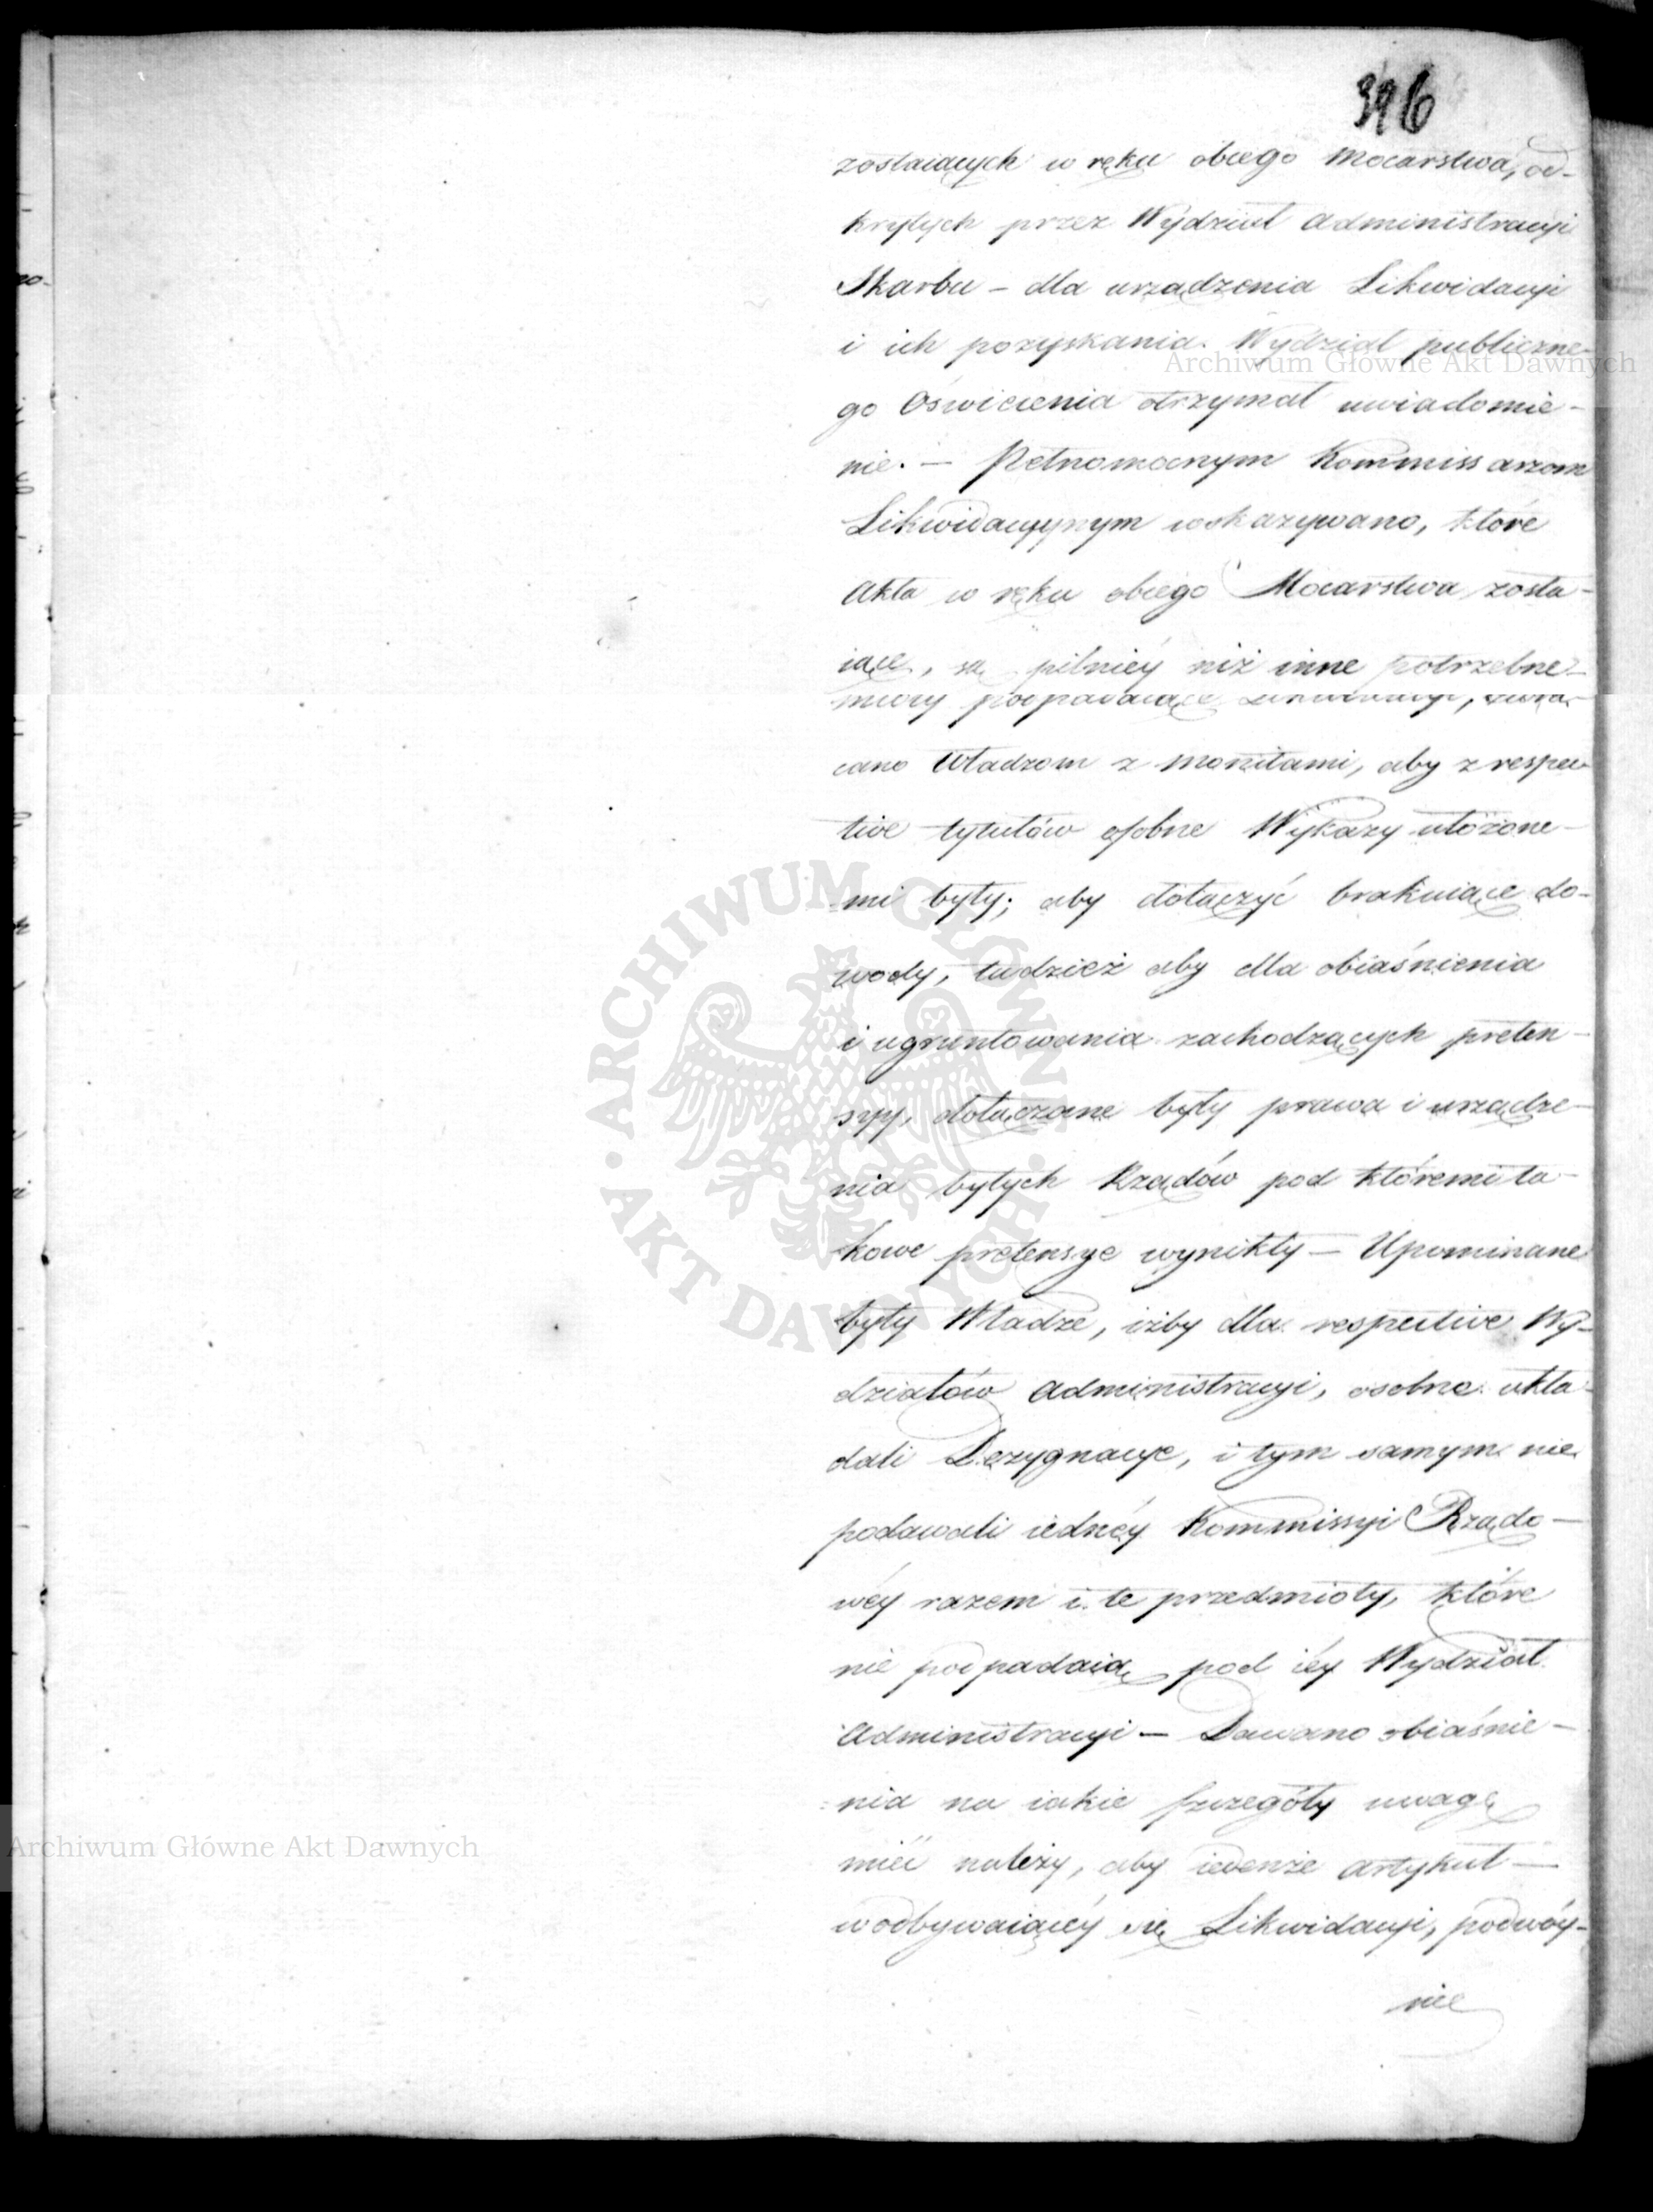 396
zostaiących w ręku obcego Mocarstwa, od-
krytych przez Wydział Administracyi
Skarbu – dla urządzenia Likwidacyi
i ich pozyskania. Wydział publiczne-
go Oświecenia otrzymał uwiadomie-
nie. – Pełnomocnym Kommissarzom
Likwidacyynym wskazywano, które
Akta w ręku obcego Mocarstwa zosta-
iące, są pilniéy niż inne potrzebne –
podpadaiące Likwidacyi, zwra-
cano Władzom z monitami, aby z respec-
tive tytułów osobne Wykazy ułożone-
mi były; aby dołączyć brakuiące do-
wody, tudzież aby dla obiaśnienia
i ugruntowania zachodzących preten-
syy, dołączane były prawa i urządze-
nia byłych Rządów pod któremi ta-
kowe pretensye wynikły – Upominane
były Władze, iżby dla respective Wy-
działów Administracyi, osobne ukła-
dali Dezygnacye, i tym samym nie
podawali iednéy Kommissyi Rządo-
wéy razem i te przedmioty, które
nie podpadaią pod iéy Wydział
Administracyi – Dawano obiaśnie-
nia na iakie szczegóły uwagę
mieć należy, aby iedenże artykuł –
w odbywaiącéy się Likwidacyi, podwóy-
nie
Archiwum Główne Akt Dawnych
ARCHIWUM GŁÓWNE AKT DAWNYCH
Archiwum Główne Akt Dawnych